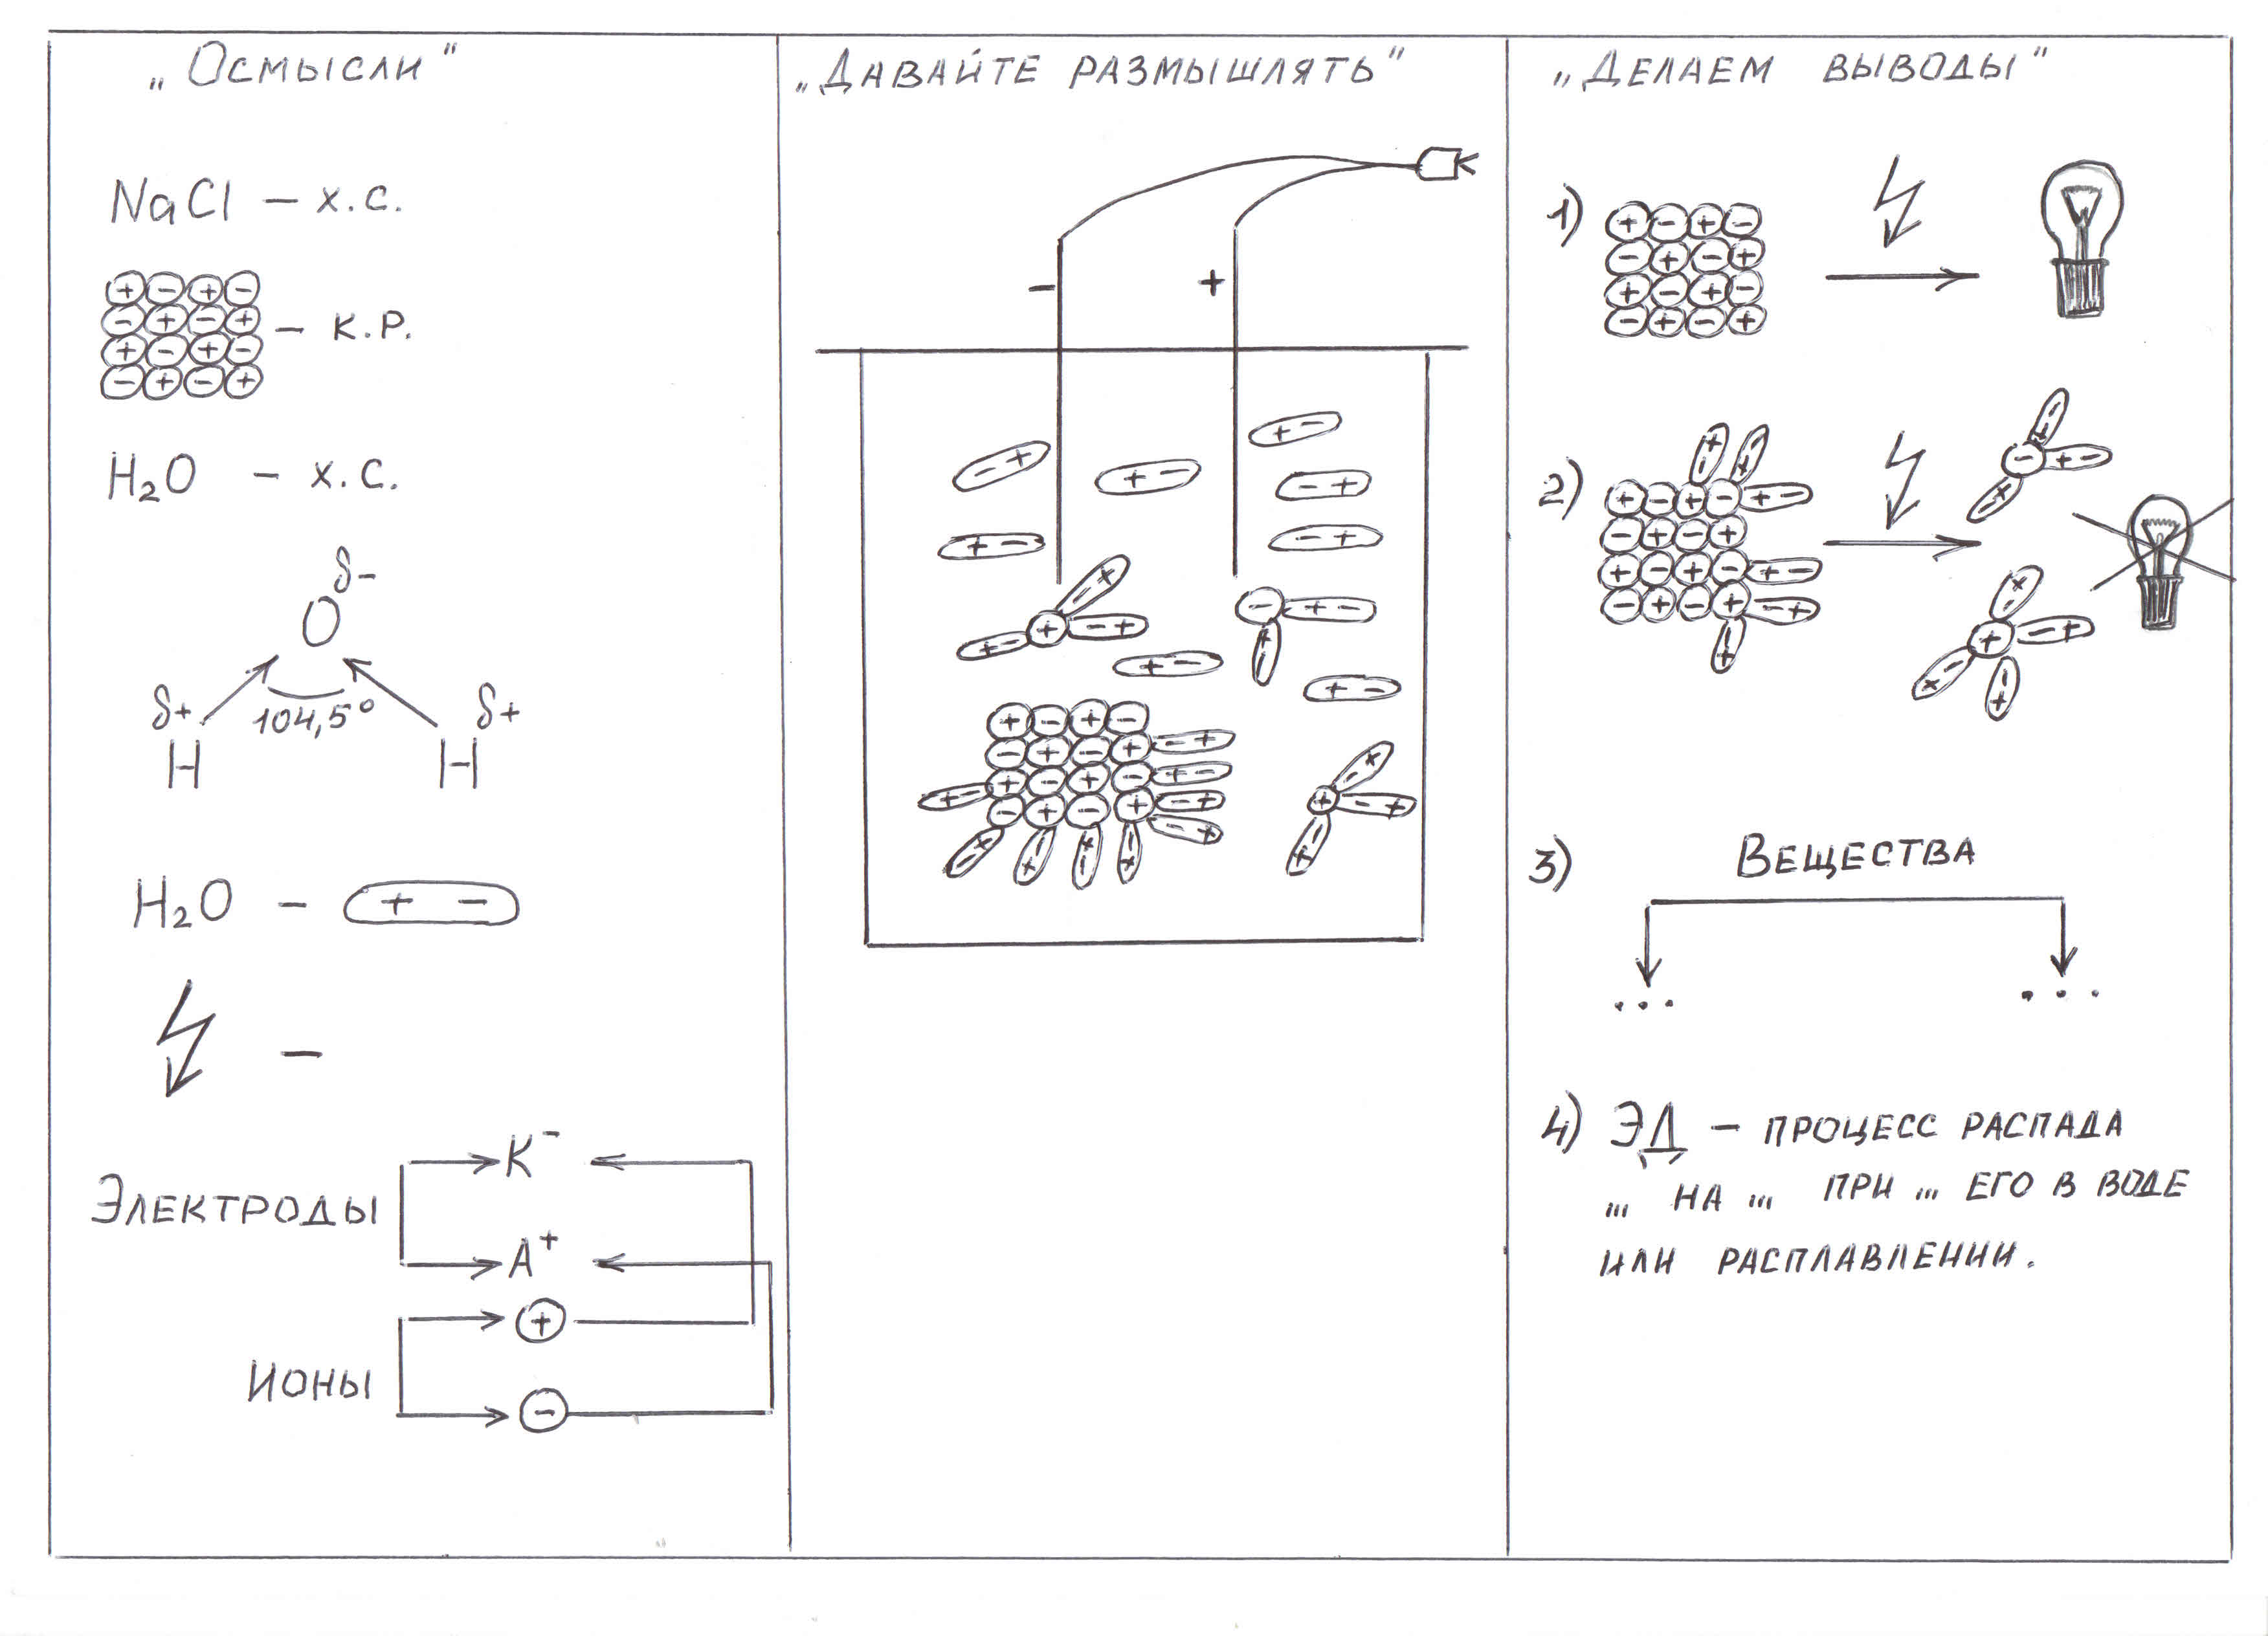 „Осмысли"
NaCl – х.с.
+ - + -
- + - +
+ - + -
- + - +
– К.Р.
H₂O – х.с.
δ-
O
δ+ 104,5° δ+
H H
H₂O – + -
–
Электроды
К⁻
А⁺
Ионы
+
-
„Давайте размышлять"
- +
- +
+ -
+ -
- +
+ -
- +
+ -
+ - + -
- + - +
+ - + -
- + - +
„Делаем выводы"
1)
+ - + -
- + - +
+ - + -
- + - +
2)
+ - + -
- + - +
+ - + -
- + - +
3) Вещества
... ...
4) ЭД – процесс распада
... на ... при ... его в воде
или расплавлении.